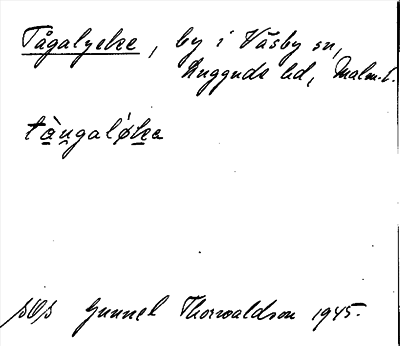 Tågalycke, by i Väsby sn,
Luggude hd, Malm. l.
tàngaløka
Gunnel Thorwaldson 1945.